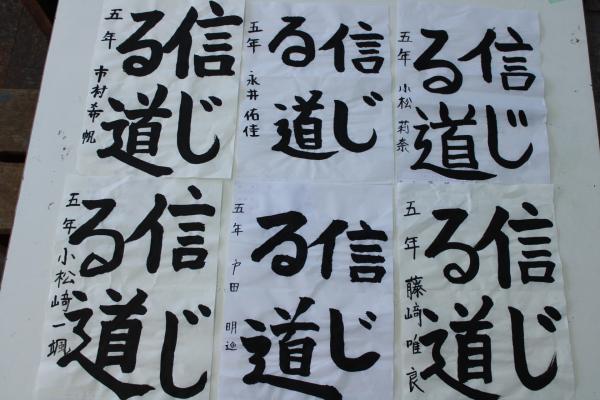 信じ
る道
五年 市村希帆
信じ
る道
五年 永井佑佳
信じ
る道
五年 小松莉奈
信じ
る道
五年 小松崎一颯
信じ
る道
五年 戸田明
信じ
る道
五年 藤崎唯良